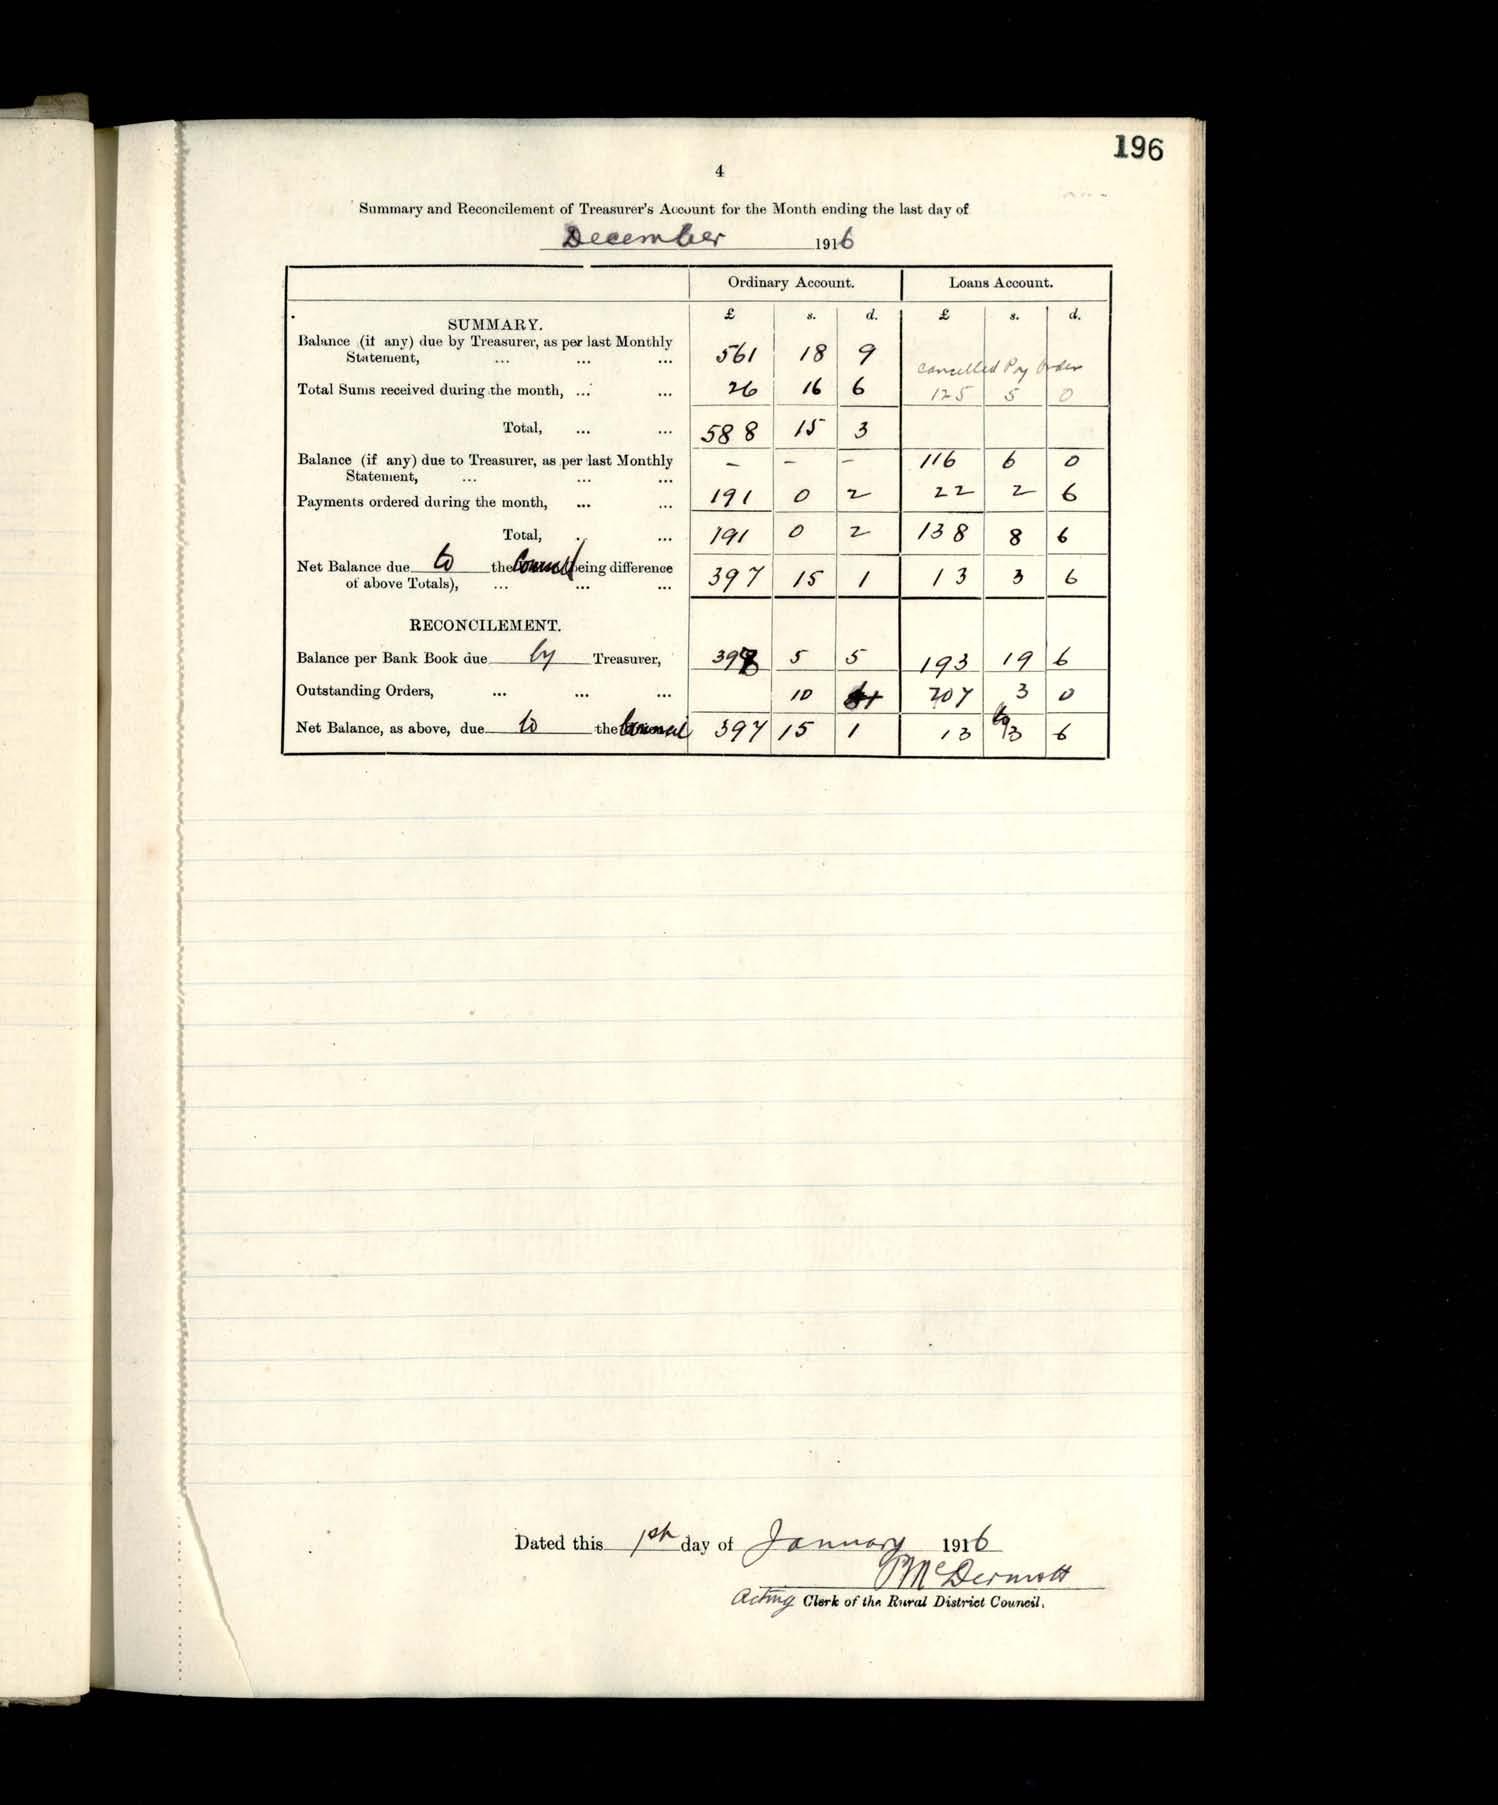 196
4
Summary and Reconcilement of Treasurer's Account for the Month ending the last day of
December 1916
Ordinary Account. Loans Account.
SUMMARY. £ s. d. £ s. d.
Balance (if any) due by Treasurer, as per last Monthly
Statement, ... ... ... 561 18 9
cancelled Pay Order
Total Sums received during the month, ... ... 26 16 6 125 5 0
Total, ... ... 588 15 3
Balance (if any) due to Treasurer, as per last Monthly — — — 116 6 0
Statement, ... ... ...
Payments ordered during the month, ... ... 191 0 2 22 2 6
Total, ... ... 191 0 2 138 8 6
Net Balance due to the Council being difference
of above Totals), ... ... ... 397 15 1 13 3 6
RECONCILEMENT.
Balance per Bank Book due by Treasurer, 398 5 5 193 19 6
Outstanding Orders, ... ... ... 10 207 3 0
Net Balance, as above, due to the Council 397 15 1 13 by 3 6
Dated this 1st day of January 1916
P McDermott
Acting Clerk of the Rural District Council.